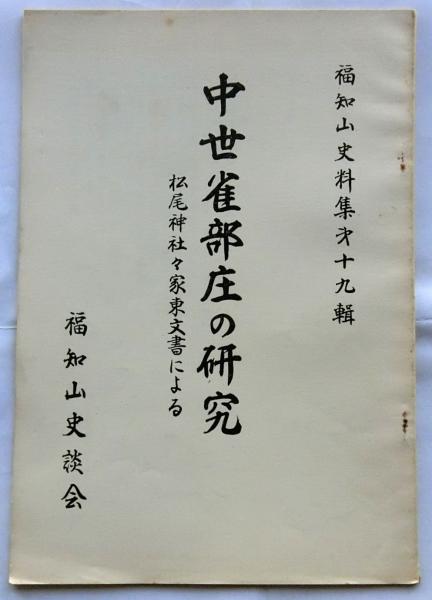 福知山史料集才十九輯
中世雀部庄の研究
松尾神社々家東文書による
福知山史談会